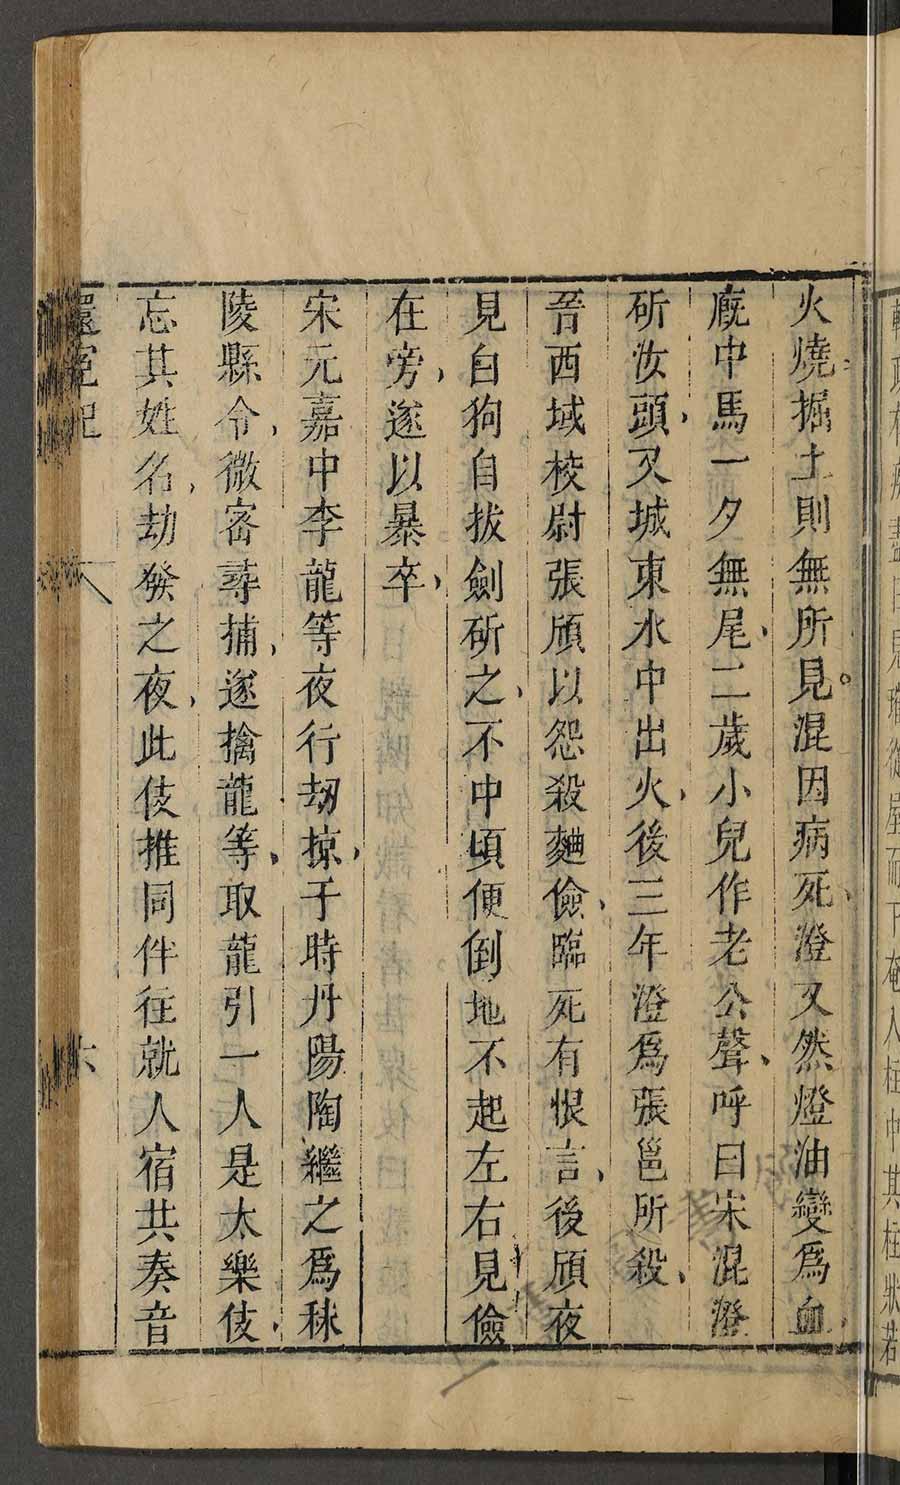 火燒掘土則無所見混因病死澄又然燈油變爲血
廐中馬一夕無尾二歲小兒作老公聲呼曰宋混澄
斫汝頭又城東水中出火後三年澄爲張邕所殺
晉西域校尉張頎以怨殺麴儉臨死有恨言後頎夜
見白狗自拔劍斫之不中頃便倒地不起左右見儉
在旁遂以暴卒
宋元嘉中李龍等夜行劫掠于時丹陽陶繼之爲秣
陵縣令微密尋捕遂擒龍等取龍引一人是太樂伎
忘其姓名劫發之夜此伎推同伴往就人宿共奏音
還冤記
六